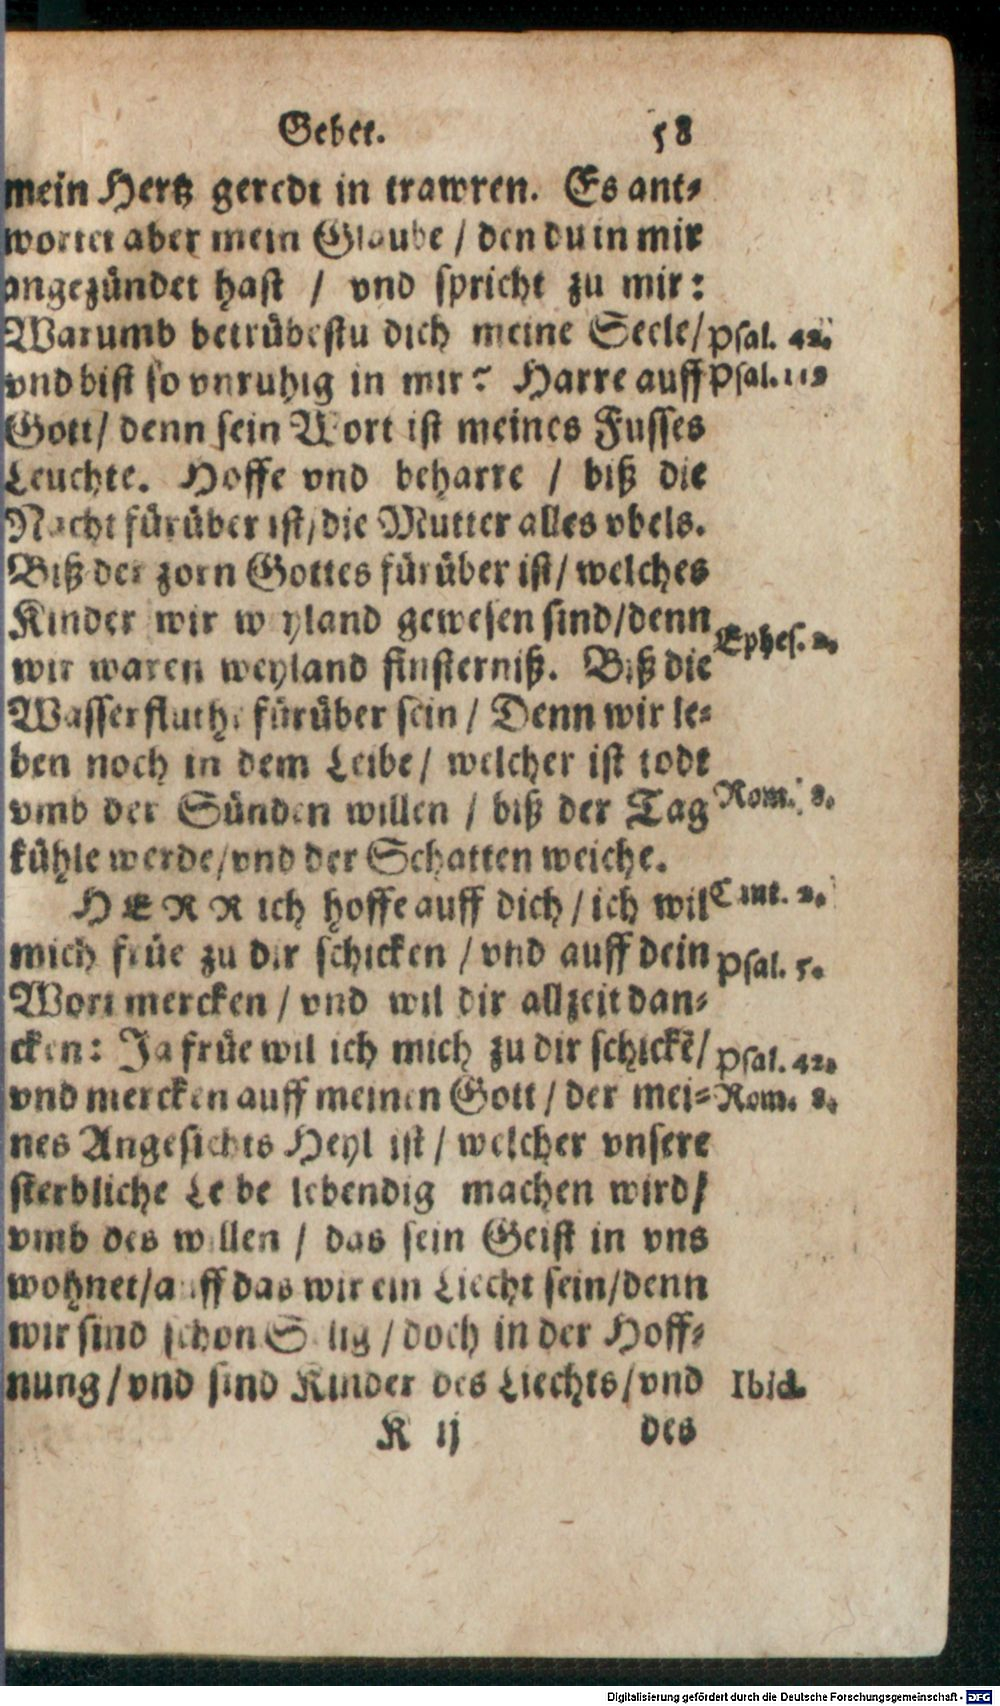 Gebet. 58
mein Hertz geredt in trawren. Es ant⸗
wortet aber mein Glaube / den du in mir
angezündet hast / vnd spricht zu mir:
Warumb betrübestu dich meine Seele / Psal. 42.
vnd bist so vnruhig in mir? Harre auff Psal. 119
Gott / denn sein Wort ist meines Fusses
Leuchte. Hoffe vnd beharre / biß die
Nacht fürüber ist / die Mutter alles vbels.
Biß der zorn Gottes fürüber ist / welches
Kinder wir weyland gewesen sind / denn
Ephes. 2.
wir waren weyland finsterniß. Biß die
Wasserfluthe fürüber sein / Denn wir le⸗
ben noch in dem Leibe / welcher ist todt
vmb der Sünden willen / biß der Tag Rom. 8.
kühle werde / vnd der Schatten weiche.
HERR ich hoffe auff dich / ich wil Cant. 2.
mich früe zu dir schicken / vnd auff dein Psal. 5.
Wort mercken / vnd wil dir allzeit dan⸗
cken: Ja früe wil ich mich zu dir schickẽ / Psal. 42.
vnd mercken auff meinen Gott / der mei⸗ Rom. 8.
nes Angesichts Heyl ist / welcher vnsere
sterbliche Leibe lebendig machen wird /
vmb des willen / das sein Geist in vns
wohnet / auff das wir ein Liecht sein / denn
wir sind schon Selig / doch in der Hoff⸗
nung / vnd sind Kinder des Liechts / vnd Ibid.
K ij des
Digitalisierung gefördert durch die Deutsche Forschungsgemeinschaft - DFG